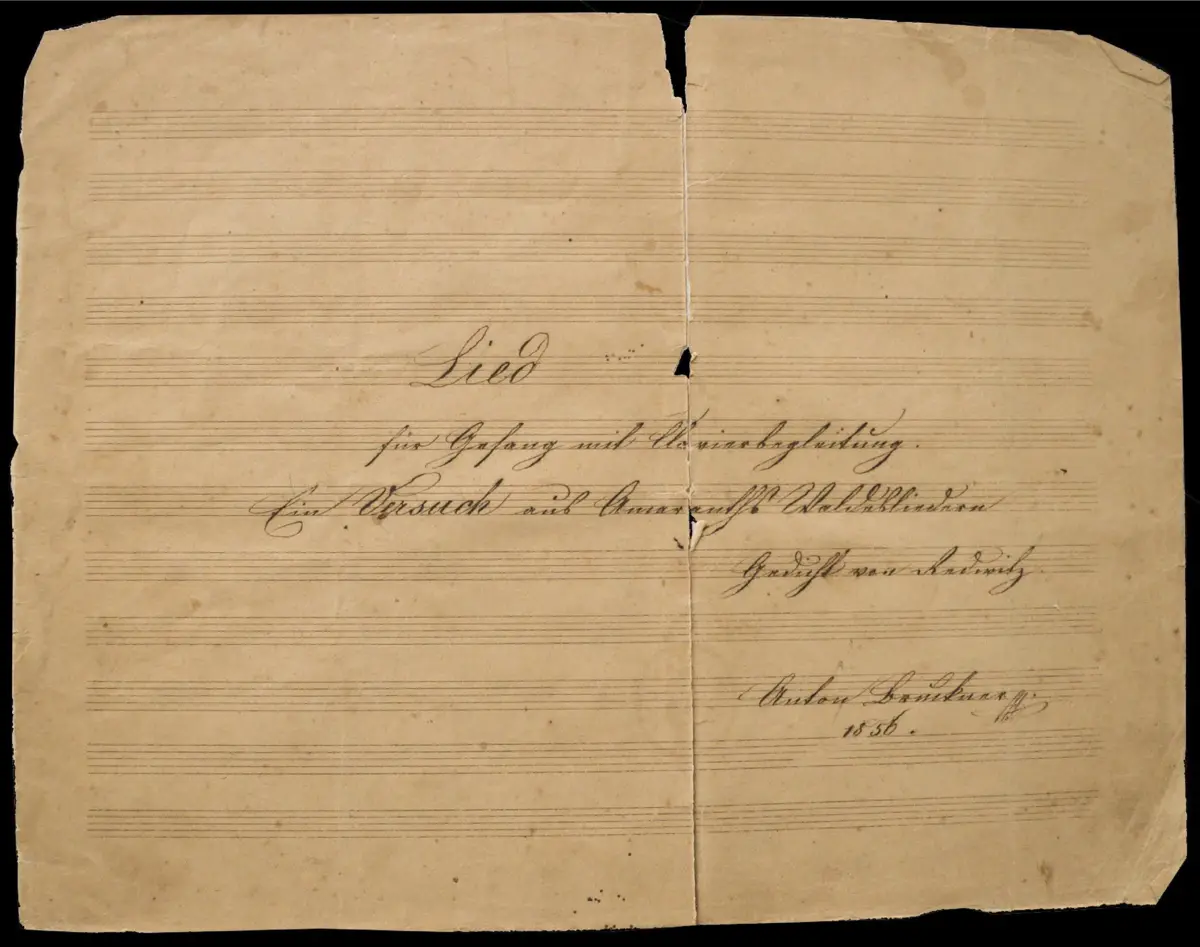 Lied
für Gesang mit Klavierbegleitung.
Ein Versuch aus Amaranths Waldesliedern
Gedicht von Redwitz.
Anton Bruckner
1856.